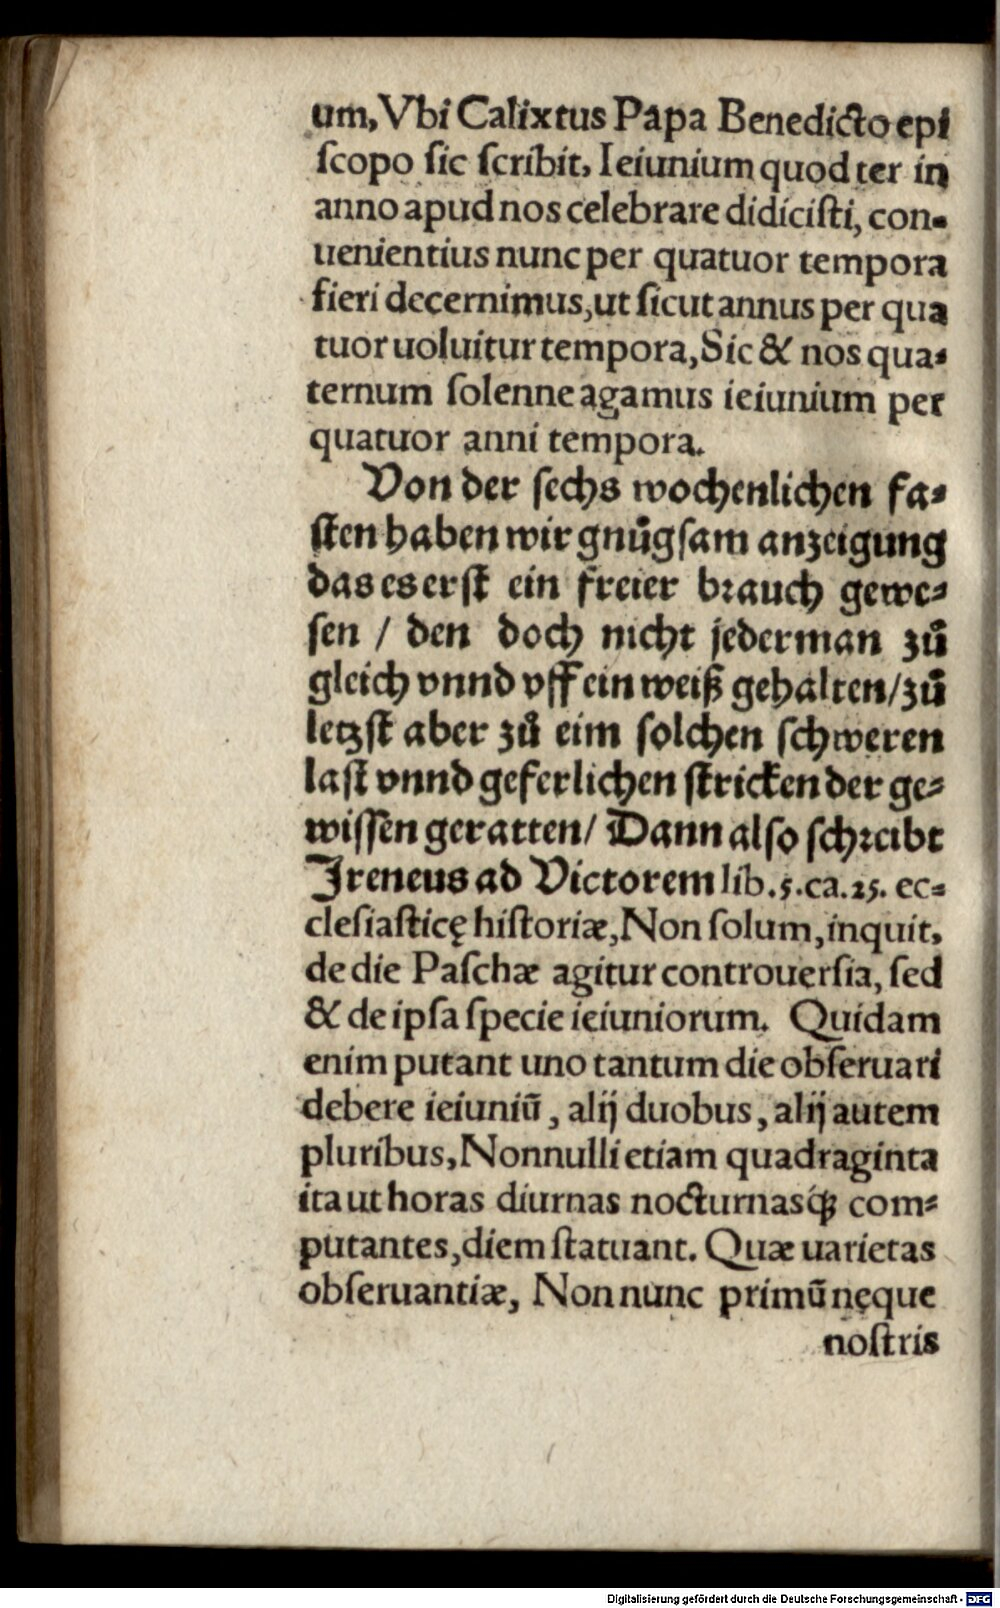 um, Vbi Calixtus Papa Benedicto epi
ſcopo ſic ſcribit, Ieiunium quod ter in
anno apud nos celebrare didiciſti, con-
uenientius nunc per quatuor tempora
fieri decernimus, ut ſicut annus per qua
tuor uoluitur tempora, Sic & nos qua-
ternum ſolenne agamus ieiunium per
quatuor anni tempora.
Von der ſechs wochenlichen fa-
ſten haben wir gnůgſam anzeigung
das es erſt ein freier brauch gewe-
ſen / den doch nicht jederman zů
gleich vnnd vff ein weiß gehalten/zů
letzſt aber zů eim ſolchen ſchweren
laſt vnnd geferlichen ſtricken der ge-
wiſſen geratten/ Dann alſo ſchreibt
Ireneus ad Victorem lib.5.ca.25. ec-
cleſiaſticę hiſtoriæ, Non ſolum, inquit,
de die Paſchæ agitur controuerſia, ſed
& de ipſa ſpecie ieiuniorum. Quidam
enim putant uno tantum die obſeruari
debere ieiuniū, alij duobus, alij autem
pluribus, Nonnulli etiam quadraginta
ita ut horas diurnas nocturnasq́ꝫ com-
putantes, diem ſtatuant. Quæ uarietas
obſeruantiæ, Non nunc primū neque
noſtris
Digitalisierung gefördert durch die Deutsche Forschungsgemeinschaft - DFG